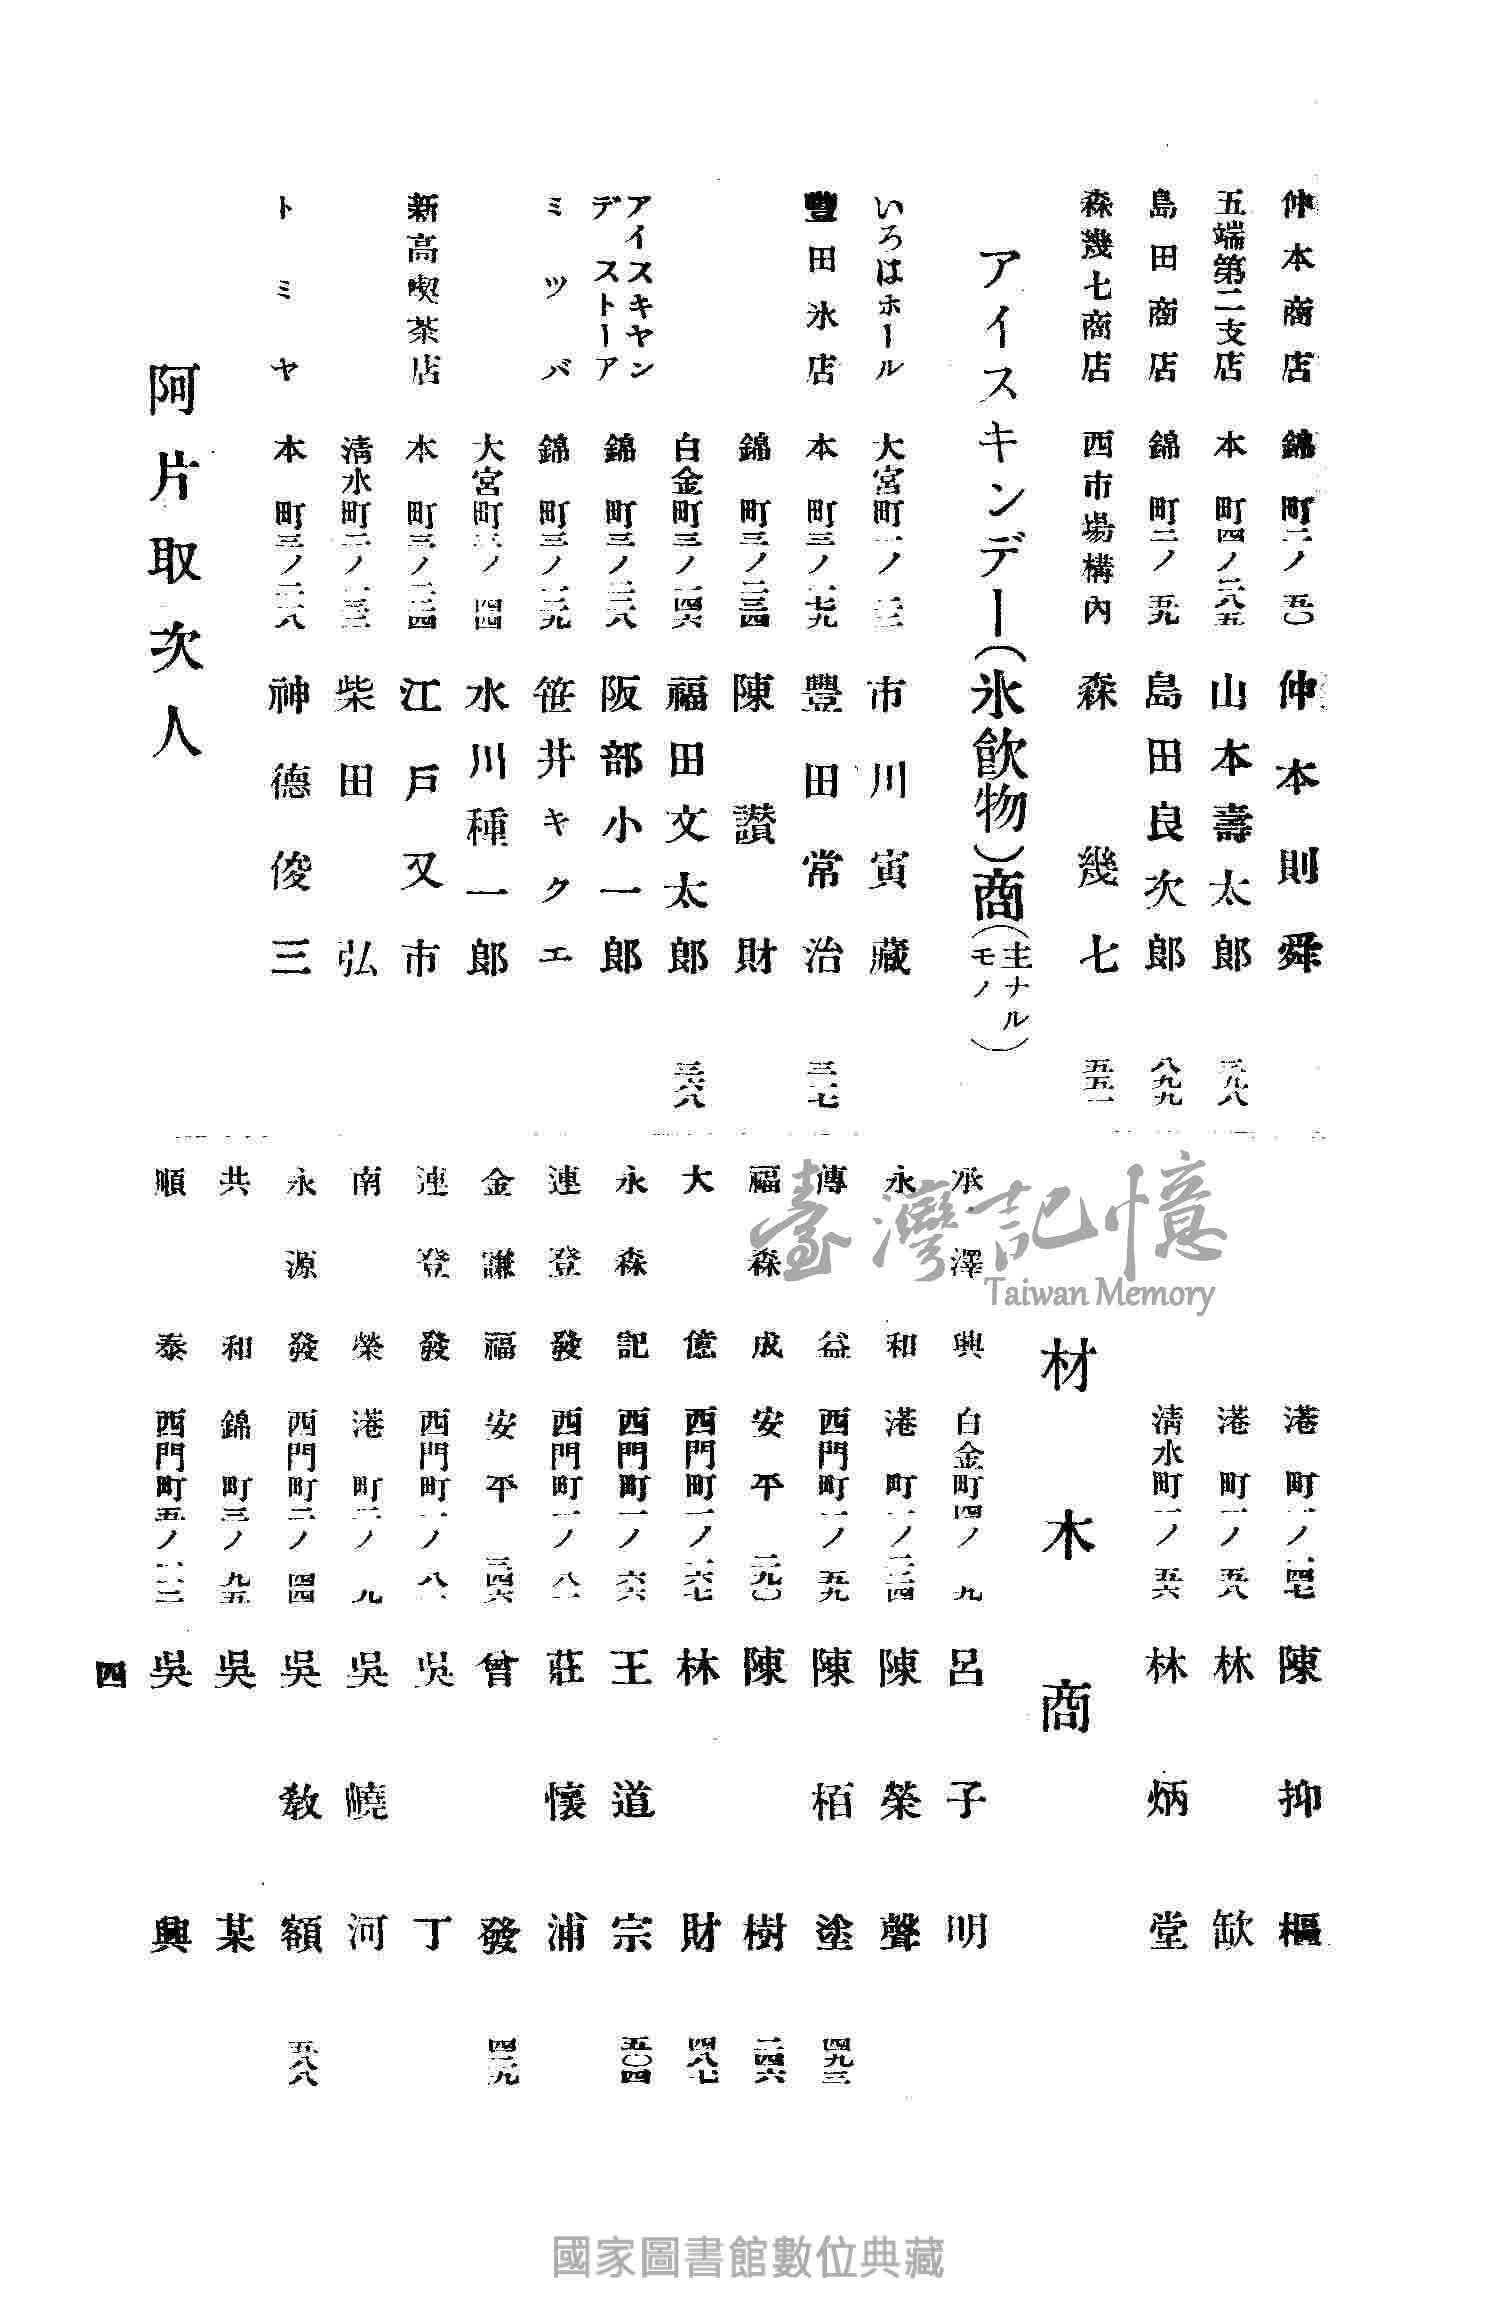 仲本商店 錦町二ノ五〇 仲本則舜
五端第二支店 本町四ノ二八五 山本壽太郎 三九八
島田商店 錦町二ノ五九 島田良次郎 八九九
森幾七商店 西市場構內 森幾七 五五一
アイスキンデー(氷飮物)商(主ナルモノ)
いろはホール 大宮町一ノ 市川寅藏
豐田氷店 本町三ノ一七九 豐田常治 三一七
錦町三ノ二三四 陳讃財
白金町三ノ一四六 福田文太郎 三六八
アイスキヤンデーストーア 錦町三ノ二八 阪部小一郎
ミツバ 錦町三ノ二九 笹井キクエ
大宮町三ノ四四 水川種一郎
新高喫茶店 本町三ノ二四 江戶又市
清水町二ノ 柴田弘
トミヤ 本町三ノ二八 神德俊三
阿片取次人
港町一ノ一四七 陳抑樞
港町一ノ五八 林缺
清水町一ノ五六 林炳堂
材木商
承澤興 白金町四ノ九 呂子明
永和 港町一ノ二二四 陳榮聲
傳益 西門町一ノ五九 陳栢塗 四九三
福森成 安平二九〇 陳樹 二四六
大億 西門町一ノ一六七 林財 四八七
永森記 西門町一ノ六六 王道宗 五〇四
連登發 西門町一ノ八一 莊懷浦
金謙福 安平三四六 曾發 四二九
連登發 西門町一ノ八一 吳丁
南榮 港町二ノ九 吳曉河
永源發 西門町二ノ四四 吳敎額 五八八
共和 錦町三ノ九五 吳某
順泰 西門町五ノ一一二 吳興
四
臺灣記憶
Taiwan Memory
國家圖書館數位典藏